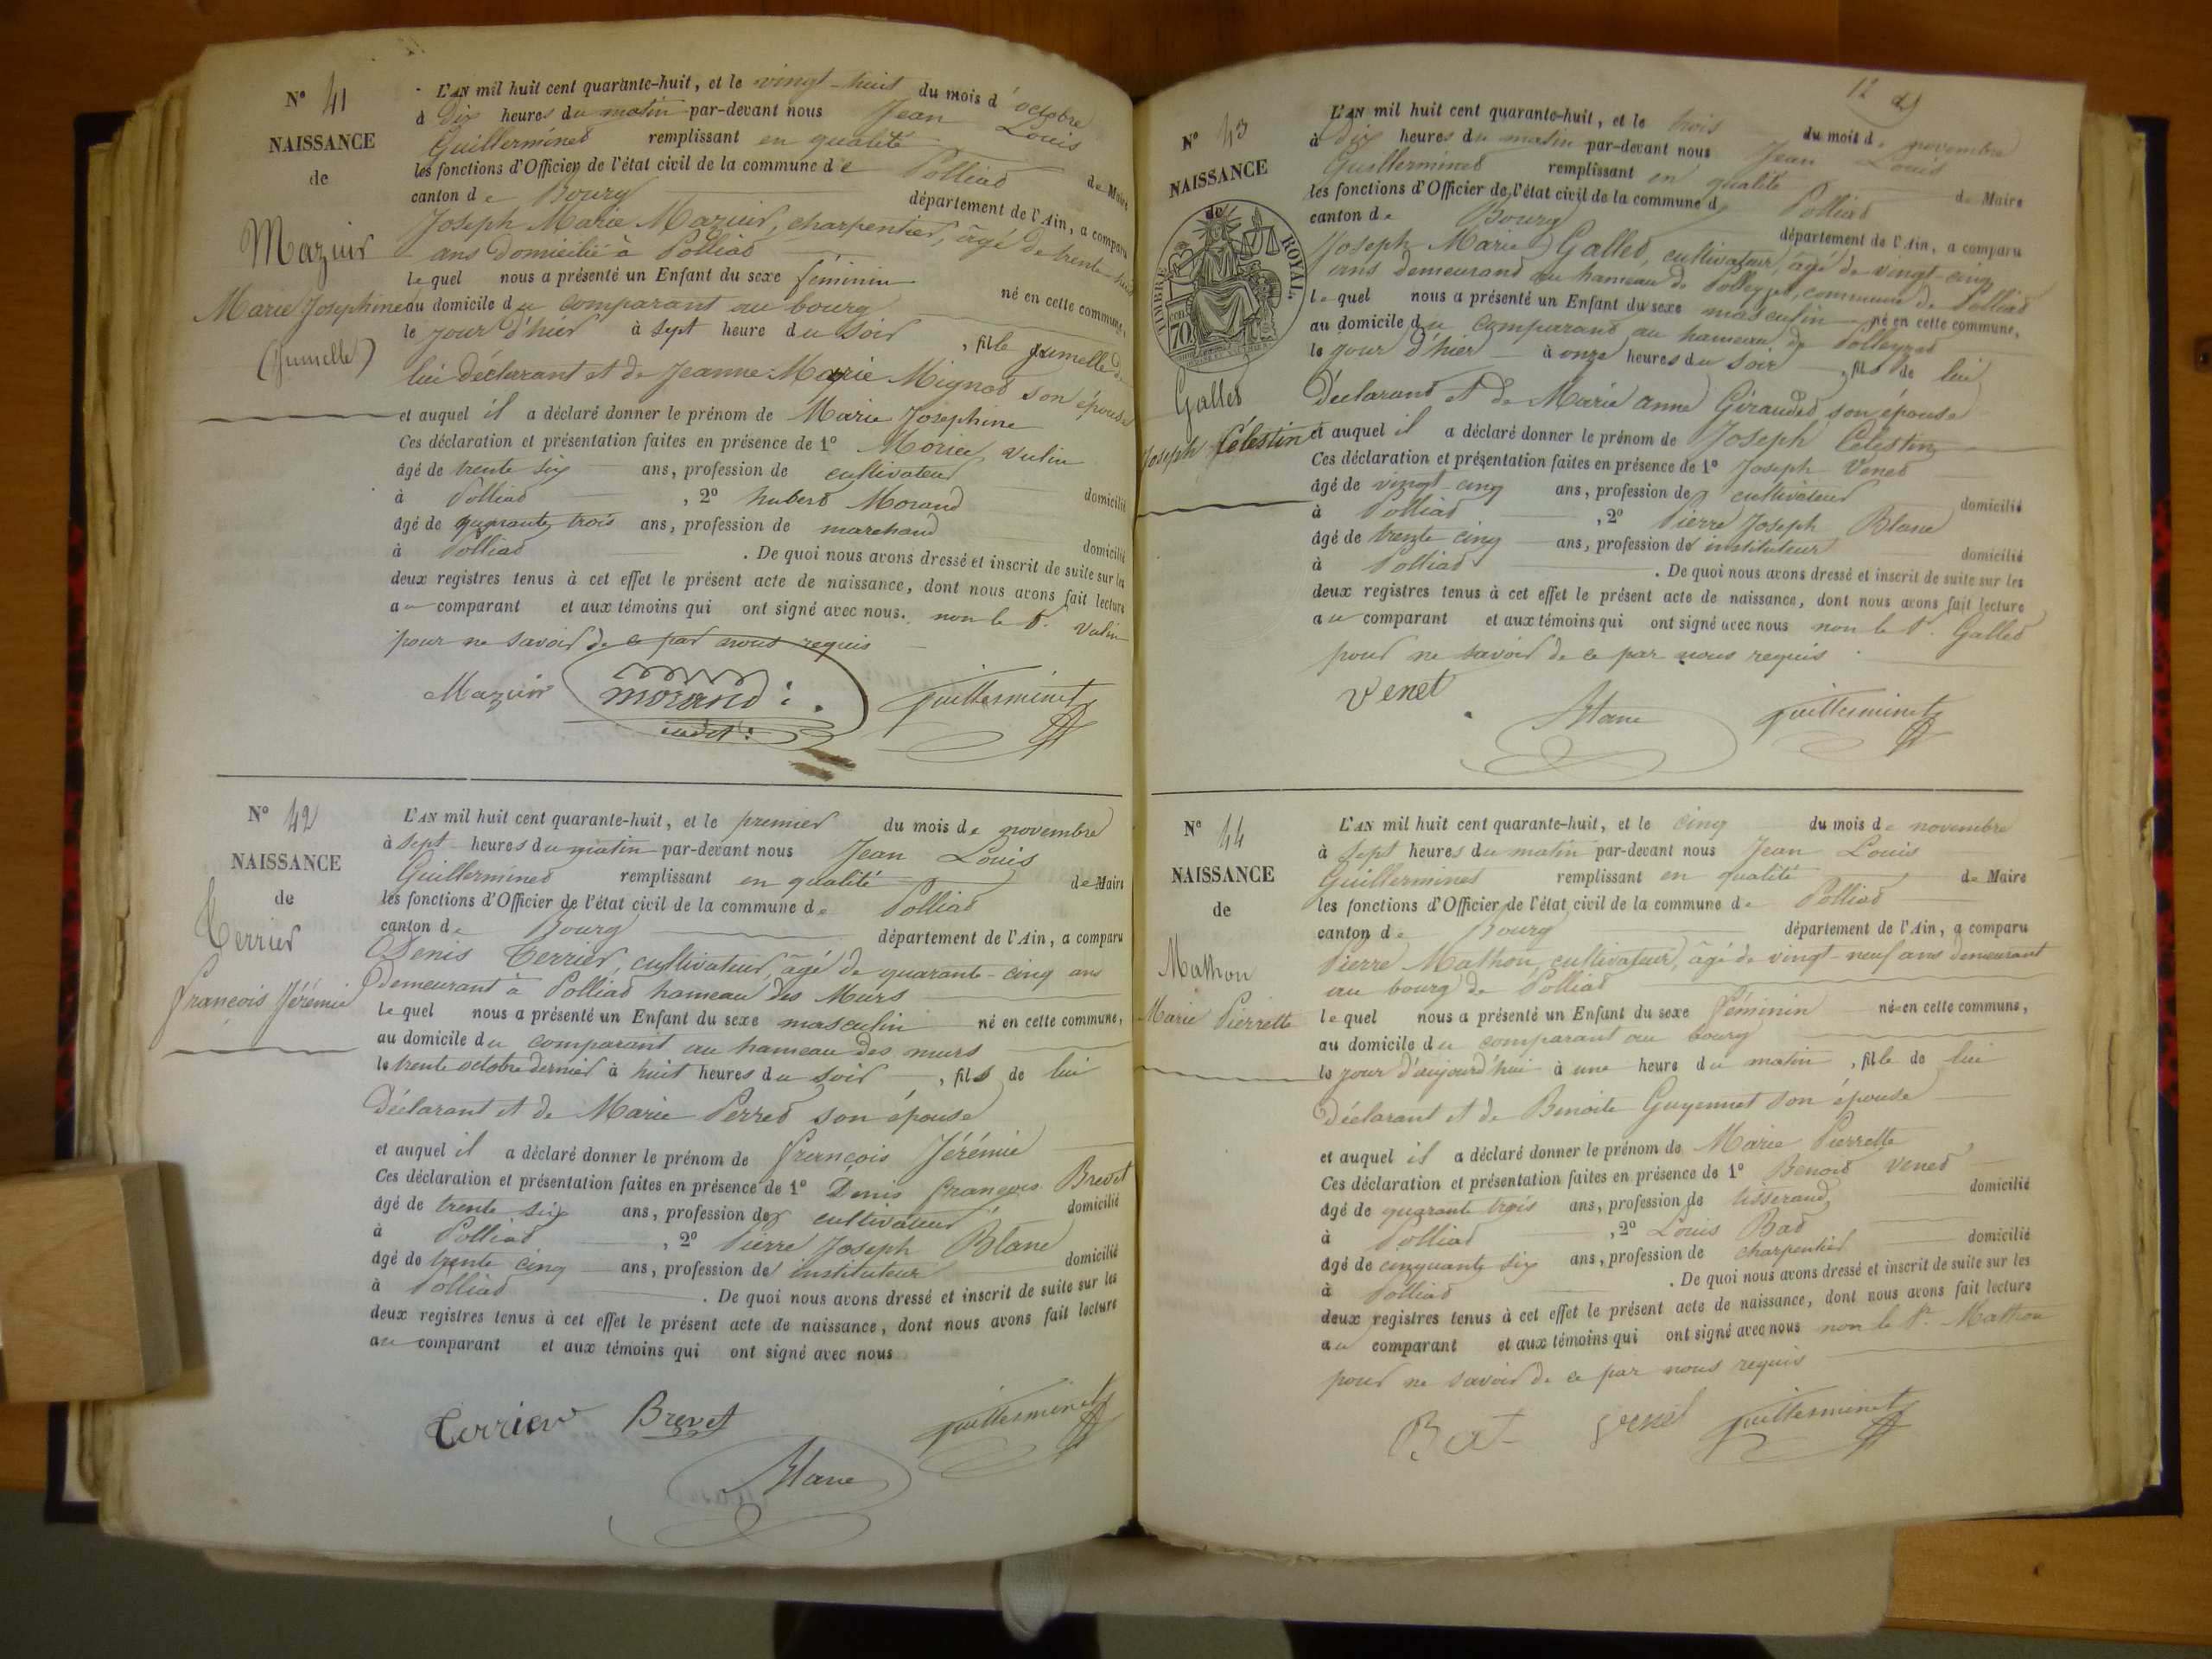 N° 41
NAISSANCE
de
Mazuir
Marie Josephine
(Jumelle)
L'AN mil huit cent quarante-huit, et le vingt-huit du mois d'octobre
à dix heures du matin par-devant nous Jean Louis
Guillerminet remplissant en qualité de Maire
les fonctions d'Officier de l'état civil de la commune de Polliat
canton de Bourg département de l'Ain, a comparu
Joseph Marie Mazuir, charpentier, âgé de trente-huit
ans domicilié à Polliat
lequel nous a présenté un Enfant du sexe féminin né en cette commune,
au domicile du comparant au bourg
le jour d'hier à sept heure du soir, fille jumelle de
lui déclarant et de Jeanne-Marie Mignot son épouse
et auquel il a déclaré donner le prénom de Marie Josephine
Ces déclaration et présentation faites en présence de 1° Vulin
âgé de trente six ans, profession de cultivateur domicilié
à Polliat, 2° hubert Morand
âgé de quarante trois ans, profession de marchand domicilié
à Polliat. De quoi nous avons dressé et inscrit de suite sur les
deux registres tenus à cet effet le présent acte de naissance, dont nous avons fait lecture
au comparant et aux témoins qui ont signé avec nous. non le d. Vulin
pour ne savoir de ce par nous requis
Mazuir morand Guillerminet
N° 42
NAISSANCE
de
Terrier
François Jérémie
L'AN mil huit cent quarante-huit, et le premier du mois de novembre
à sept heures du matin par-devant nous Jean Louis
Guillerminet remplissant en qualité de Maire
les fonctions d'Officier de l'état civil de la commune de Polliat
canton de Bourg département de l'Ain, a comparu
Denis Terrier, cultivateur, âgé de quarante-cinq ans
demeurant à Polliat hameau des Murs
lequel nous a présenté un Enfant du sexe masculin né en cette commune,
au domicile du comparant au hameau des murs
le trente octobre dernier à huit heures du soir, fils de lui
Déclarant et de Marie Perret son épouse
et auquel il a déclaré donner le prénom de François Jérémie
Ces déclaration et présentation faites en présence de 1° Denis François Brevet
âgé de trente six ans, profession de cultivateur domicilié
à Polliat, 2° Pierre Joseph Blanc
âgé de trente cinq ans, profession de instituteur domicilié
à Polliat. De quoi nous avons dressé et inscrit de suite sur les
deux registres tenus à cet effet le présent acte de naissance, dont nous avons fait lecture
au comparant et aux témoins qui ont signé avec nous
Terrier Brevet Guillerminet
Blanc
12
N° 43
NAISSANCE
de
TIMBRE ROYAL
70
Gallet
Joseph Célestin
L'AN mil huit cent quarante-huit, et le trois du mois de novembre
à dix heures du matin par-devant nous Jean Louis
Guillerminet remplissant en qualité de Maire
les fonctions d'Officier de l'état civil de la commune de Polliat
canton de Bourg département de l'Ain, a comparu
Joseph Marie Gallet, cultivateur, âgé de vingt-cinq
ans demeurant au hameau de Polleyzet, commune de Polliat
lequel nous a présenté un Enfant du sexe masculin né en cette commune,
au domicile du comparant au hameau de Polleyzet
le jour d'hier à onze heures du soir, fils de lui
Déclarant et de Marie anne Giraudet son épouse
et auquel il a déclaré donner le prénom de Joseph Celestin
Ces déclaration et présentation faites en présence de 1° Joseph Venet
âgé de vingt-cinq ans, profession de cultivateur domicilié
à Polliat, 2° Pierre Joseph Blanc
âgé de trente cinq ans, profession de instituteur domicilié
à Polliat. De quoi nous avons dressé et inscrit de suite sur les
deux registres tenus à cet effet le présent acte de naissance, dont nous avons fait lecture
au comparant et aux témoins qui ont signé avec nous non le d. Gallet
pour ne savoir de ce par nous requis
Venet Blanc Guillerminet
N° 44
NAISSANCE
de
Mathon
Marie Pierrette
L'AN mil huit cent quarante-huit, et le cinq du mois de novembre
à sept heures du matin par-devant nous Jean Louis
Guillerminet remplissant en qualité de Maire
les fonctions d'Officier de l'état civil de la commune de Polliat
canton de Bourg département de l'Ain, a comparu
Pierre Mathon, cultivateur, âgé de vingt-neuf ans demeurant
au bourg de Polliat
lequel nous a présenté un Enfant du sexe féminin né en cette commune,
au domicile du comparant au bourg
le jour d'aujourd'hui à une heure du matin, fille de lui
Déclarant et de Benoite Guyennet son épouse
et auquel il a déclaré donner le prénom de Marie Pierrette
Ces déclaration et présentation faites en présence de 1° Benoit Venet
âgé de quarante trois ans, profession de tisserand domicilié
à Polliat, 2° Louis Bat
âgé de cinquante six ans, profession de charpentier domicilié
à Polliat. De quoi nous avons dressé et inscrit de suite sur les
deux registres tenus à cet effet le présent acte de naissance, dont nous avons fait lecture
au comparant et aux témoins qui ont signé avec nous non le d. Mathon
pour ne savoir de ce par nous requis
Bat Venet Guillerminet